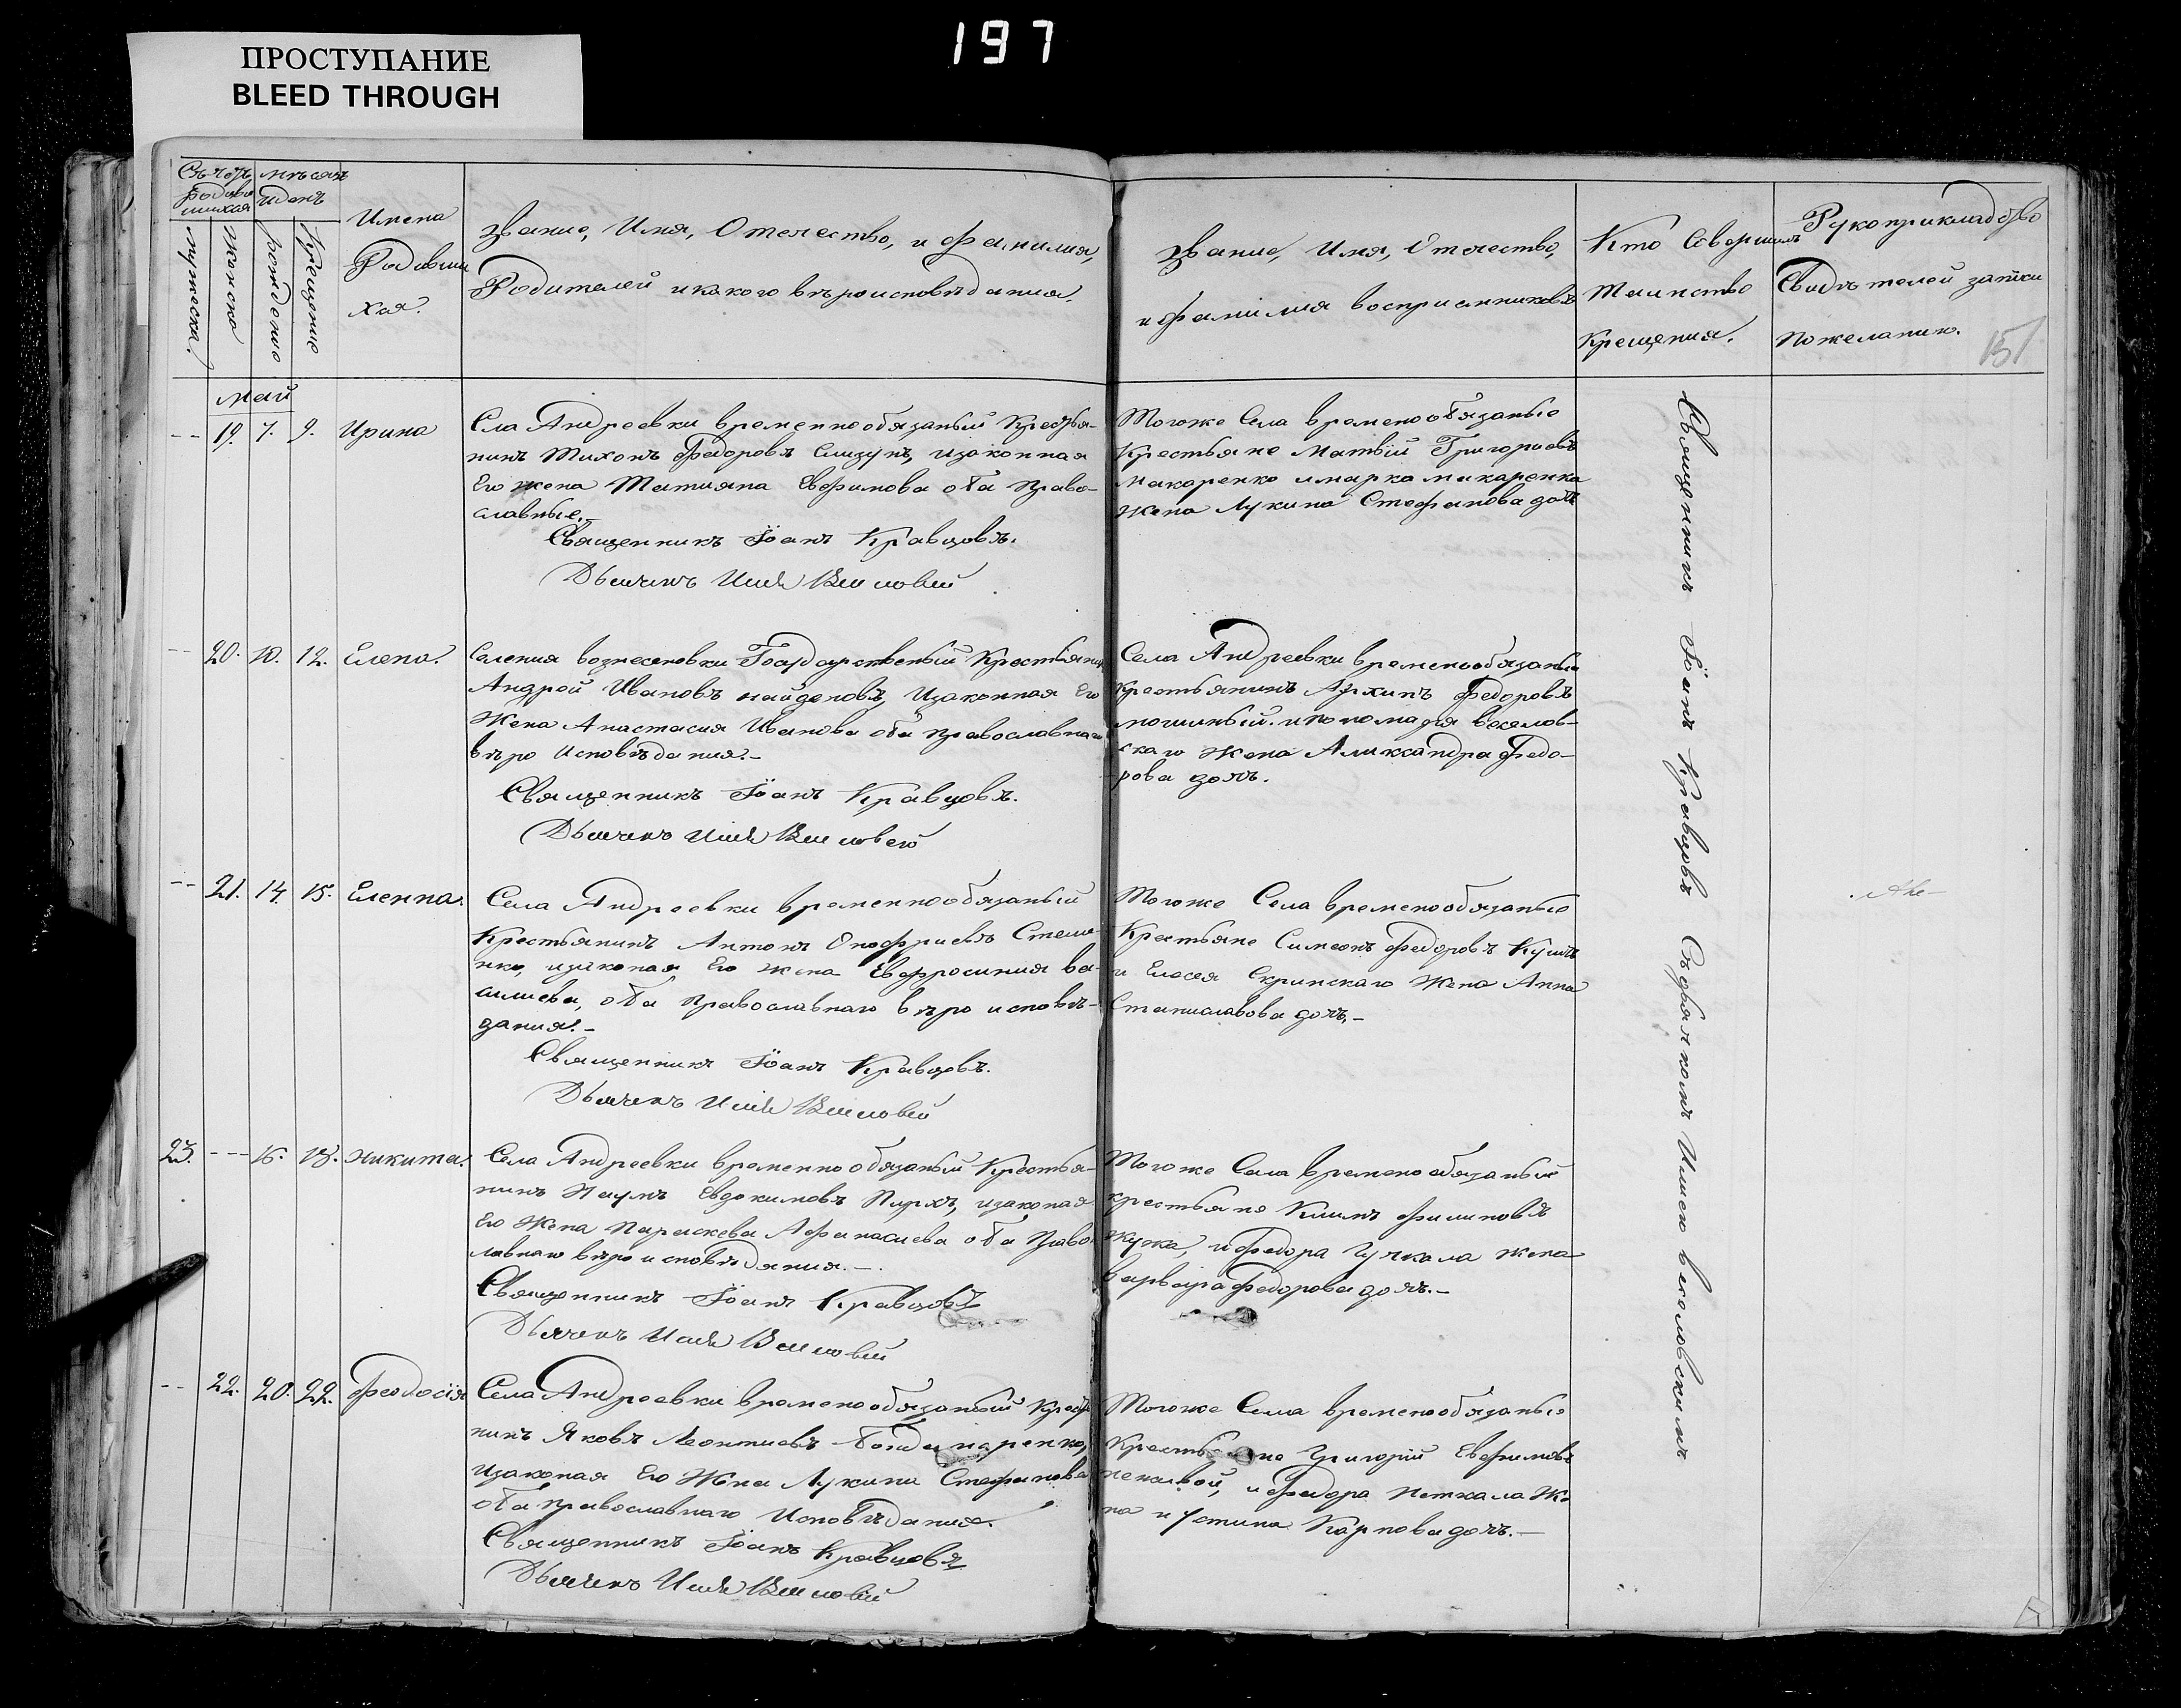 197
ПРОСТУПАНИЕ
BLEED THROUGH
мѣсяцъ
и день
мужеска.
женска
рождение
крещение
Имена
Родивши
хся.
Звание, Имя, Отечество, и фамилия,
Родителей и какого вѣроисповѣдания.
Звание, Имя, Отечество,
и фамилия восприемниковъ
Кто Совершилъ
Таинство
Крещения.
Рукоприкладство
Свидѣтелей записи
по желанию.
151
май
-- 19. 7. 9. Ирина
Сла Андреевки временнообязаный Крестья-
нинъ Тихонъ Федоровъ Слизунъ, изаконная
Его жена Татияна Евфимова оба Право-
славные.-
Священникъ Іоанъ Кравцовъ.
Дьячекъ
Тогоже Села временообязаные
Крестьяне Матвій Григориевъ
Макаренко и марка макаренка
Жена Лукина Стефанова дочь
-- 20. 10. 12. Елена.
Селения вознесеновки Государственый Крестьянинъ
Андрей Ивановъ найденовъ, Изаконная Его
Жена Анастасия Иванова оба православнаго
вѣро Исповѣдания.-
Священникъ Іоанъ Кравцовъ.
Дьячекъ
Села Андреевки временообязаный
Крестьянинъ Архипъ Федоровъ
мошиный. и пономаря веселов-
скаго Жена Аликсандра Федо-
рова дочь.
-- 21. 14. 15. Еленна.
Села Андреевки временнообязаный
Крестьянинъ Антонъ Онофриевъ Стеше-
нко, изаконая Его жена Евфросиния ва-
силиева, оба Православнаго вѣро исповѣ-
дания.-
Священникъ Іоанъ Кравцовъ.
Дьячекъ
Тогоже Села временообязаные
Крестьяне Симеонъ Федоровъ Кушъ
и Елесея Скринскаго Жена Анна
Станиславова дочь.-
23. --- 16. 18. Никита.
Села Андреевки временно обязаный Крестья-
нинъ Наумъ Евдокимовъ Пирхъ, изаконая
Его Жена Параскева Афанасиева оба Право-
лавнаго вѣро исповѣдания.-.
Священникъ Іоанъ Кравцовъ
Дьячекъ
Тогоже Села временообязаный
крестьяне Климъ Филиповъ
Жужа, и Федора Гучкала жена
варвара Федорова дочь.-
-- 22. 20. 22. Феодосія
Села Андреевки временообязаный Крестья
нинъ Яковъ Леонтиевъ Бондаренко,
Изаконая Его Жена Лукина Стефанова
оба православнаго Исповѣдания.
Священникъ Іоанъ Кравцовъ
Дьячекъ
Тогоже Села временообязаные
Крестьяне Григорій Евфимовъ
и Федора Неткала Же
на иустина Карпова дочь.-
Священникъ Іоанъ Кравцовъ Съдьячкомъ Илиею веселовскимъ